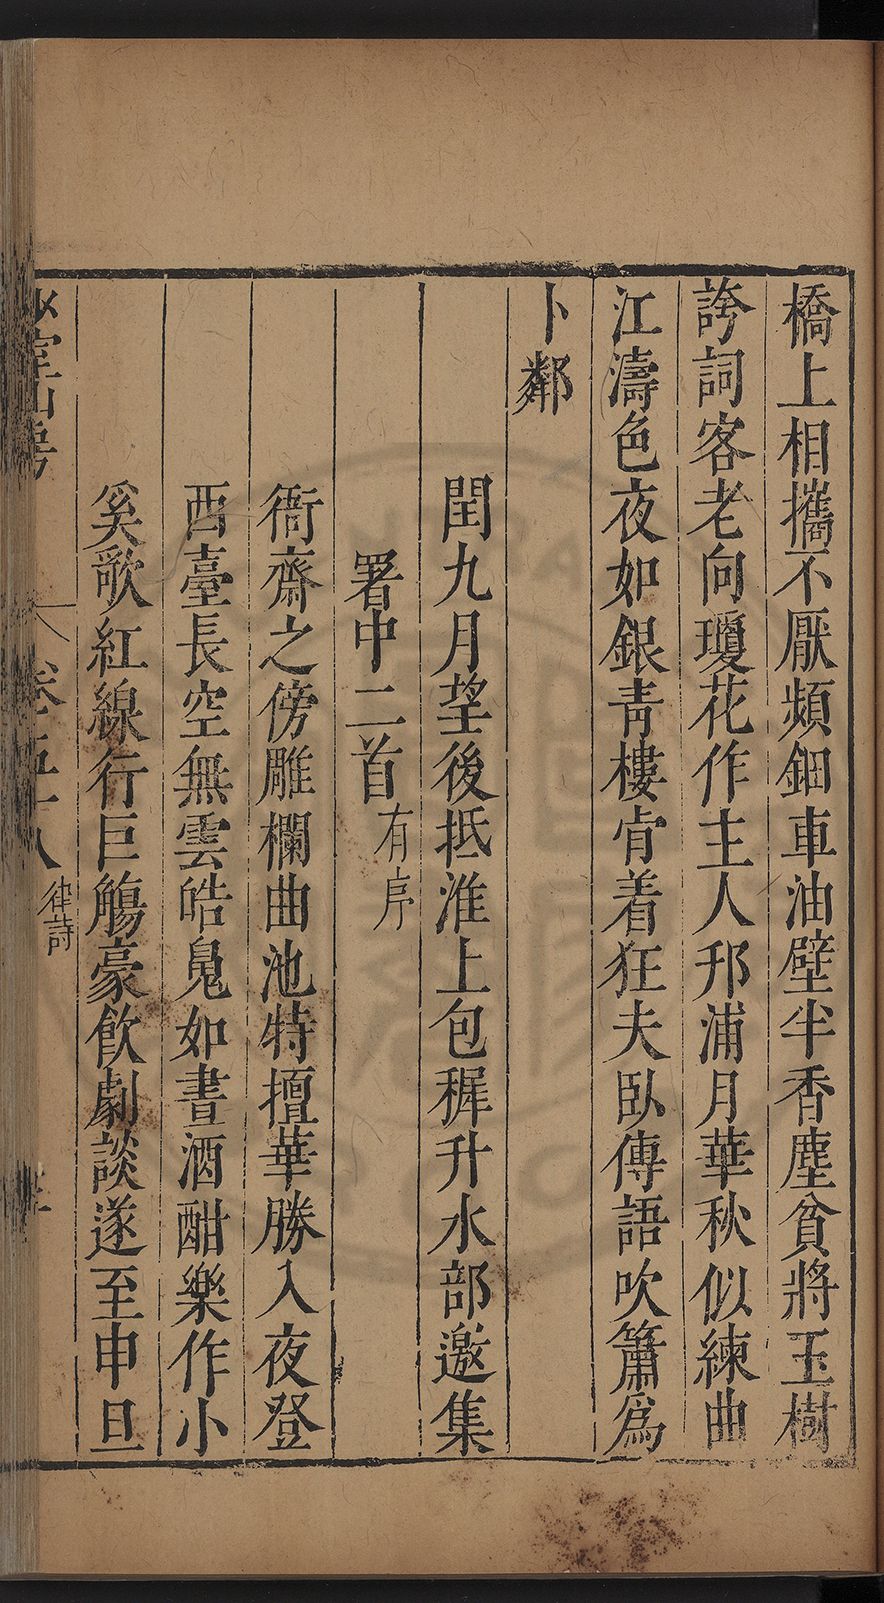 橋上相攜不厭頻鈿車油壁半香塵貧將玉樹
誇詞客老向瓊花作主人邗浦月華秋似練曲
江濤色夜如銀青樓肯着狂夫臥傳語吹簫爲
卜鄰
閏九月望後抵淮上包稺升水部邀集
署中二首有序
衙齋之傍雕欄曲池特擅華勝入夜登
西臺長空無雲皓魄如晝酒酣樂作小
奚歌紅線行巨觴豪飲劇談遂至申旦
少室山房
卷五十八
律詩